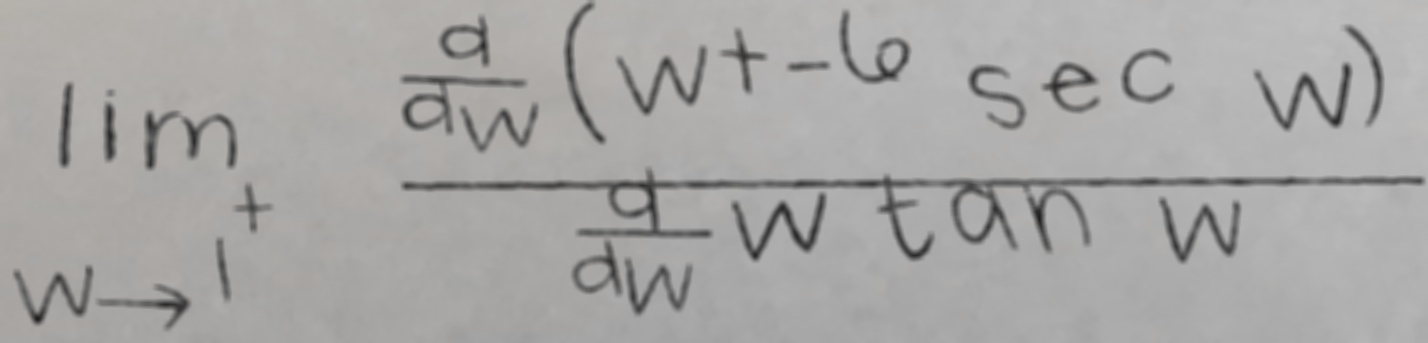 \lim_{w \to 1^+} \frac{\frac{d}{dw}(w + -6 \sec w)}{\frac{d}{dw} w \tan w}